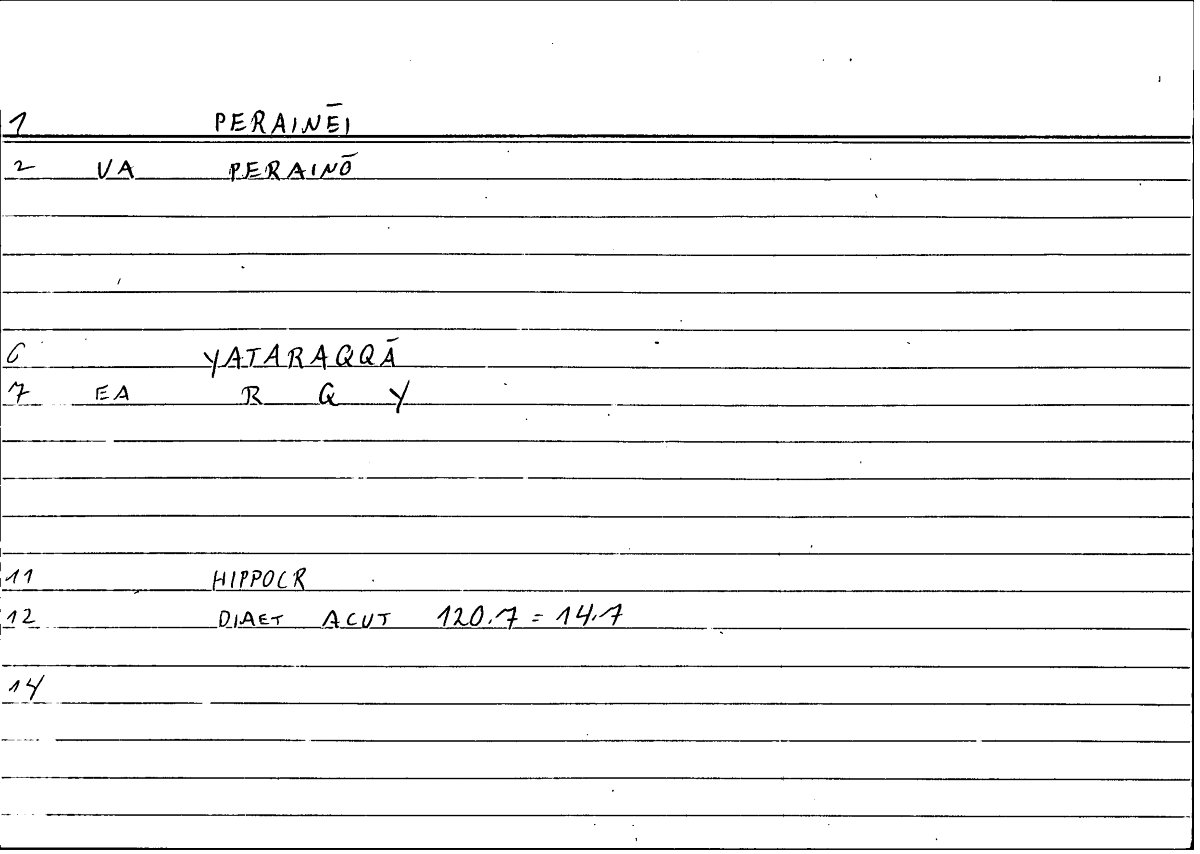 1 PERAINĒI
2 VA PERAINŌ
6 YATARAQQĀ
7 EA R Q Y
11 HIPPOCR
12 DIAET ACUT 120.7 = 14.7
14